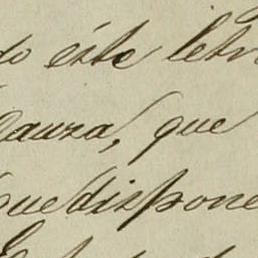 do éste letr
Causa, que
que dispone